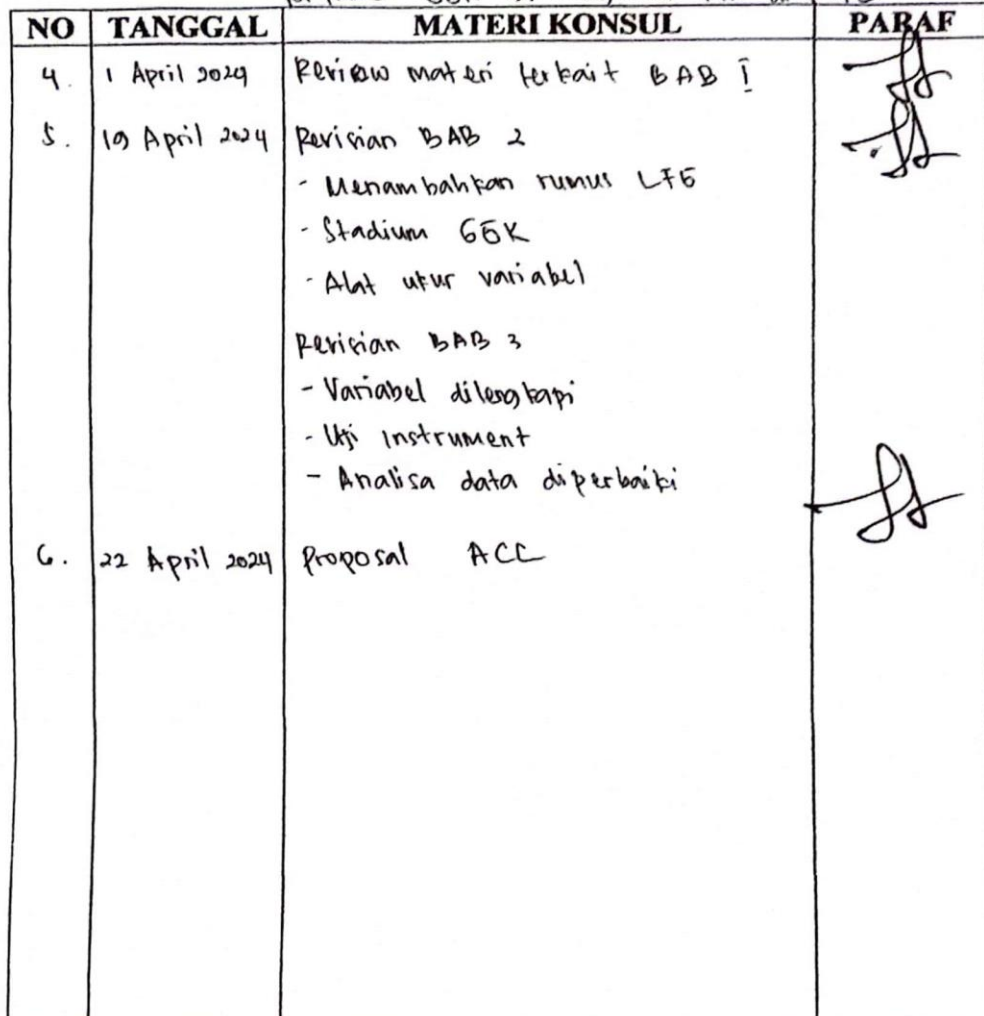 NO TANGGAL MATERI KONSUL PARAF
4. 1 April 2024 Review materi terkait BAB I
5. 19 April 2024 Revisian BAB 2
- Menambahkan rumus LFG
- Stadium GGK
- Alat ukur variabel
Revisian BAB 3
- Variabel dilengkapi
- Uji instrument
- Analisa data diperbaiki
6. 22 April 2024 Proposal ACC